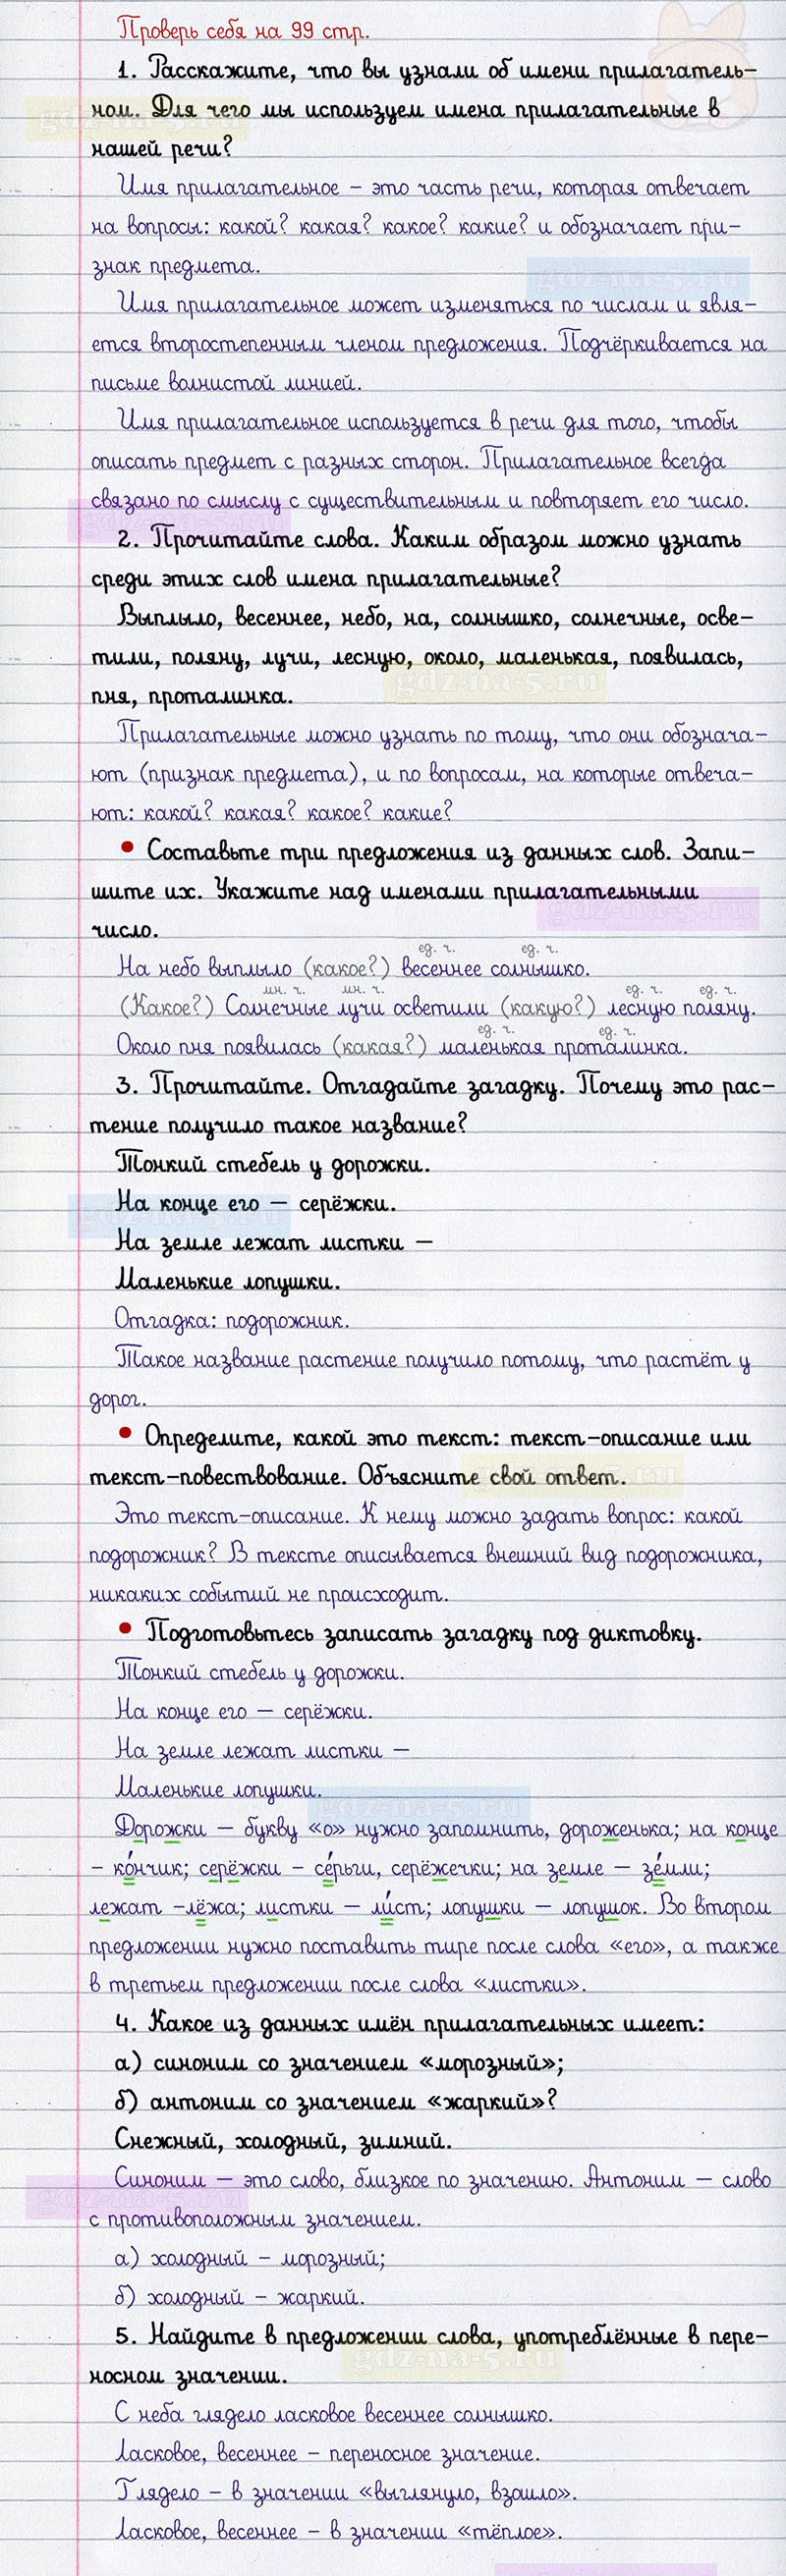 Проверь себя на 99 стр.
1. Расскажите, что вы узнали об имени прилагатель-
ном. Для чего мы используем имена прилагательные в
нашей речи?
Имя прилагательное – это часть речи, которая отвечает
на вопросы: какой? какая? какое? какие? и обозначает при-
знак предмета.
Имя прилагательное может изменяться по числам и явля-
ется второстепенным членом предложения. Подчёркивается на
письме волнистой линией.
Имя прилагательное используется в речи для того, чтобы
описать предмет с разных сторон. Прилагательное всегда
связано по смыслу с существительным и повторяет его число.
2. Прочитайте слова. Каким образом можно узнать
среди этих слов имена прилагательные?
Выплыло, весеннее, небо, на, солнышко, солнечные, осве-
тили, поляну, лучи, лесную, около, маленькая, появилась,
пня, проталинка.
Прилагательные можно узнать по тому, что они обознача-
ют (признак предмета), и по вопросам, на которые отвеча-
ют: какой? какая? какое? какие?
• Составьте три предложения из данных слов. Запи-
шите их. Укажите над именами прилагательными
число.
ед. ч. ед. ч.
На небо выплыло (какое?) весеннее солнышко.
мн. ч. мн. ч. ед. ч. ед. ч.
(Какое?) Солнечные лучи осветили (какую?) лесную поляну.
ед. ч. ед. ч.
Около пня появилась (какая?) маленькая проталинка.
3. Прочитайте. Отгадайте загадку. Почему это рас-
тение получило такое название?
Тонкий стебель у дорожки.
На конце его – серёжки.
На земле лежат листки –
Маленькие лопушки.
Отгадка: подорожник.
Такое название растение получило потому, что растёт у
дорог.
• Определите, какой это текст: текст-описание или
текст-повествование. Объясните свой ответ.
Это текст-описание. К нему можно задать вопрос: какой
подорожник? В тексте описывается внешний вид подорожника,
никаких событий не происходит.
• Подготовьтесь записать загадку под диктовку.
Тонкий стебель у дорожки.
На конце его – серёжки.
На земле лежат листки –
Маленькие лопушки.
Дорожки – букву «о» нужно запомнить, дороженька; на конце
– ко́нчик; серёжки – се́рьги, серёжечки; на земле – зе́мли;
лежат –лёжа; листки – ли́ст; лопушки – лопушок. Во втором
предложении нужно поставить тире после слова «его», а также
в третьем предложении после слова «листки».
4. Какое из данных имён прилагательных имеет:
а) синоним со значением «морозный»;
б) антоним со значением «жаркий»?
Снежный, холодный, зимний.
Синоним – это слово, близкое по значению. Антоним – слово
с противоположным значением.
а) холодный – морозный;
б) холодный – жаркий.
5. Найдите в предложении слова, употреблённые в пере-
носном значении.
С неба глядело ласковое весеннее солнышко.
Ласковое, весеннее – переносное значение.
Глядело – в значении «выглянуло, взошло».
Ласковое, весеннее – в значении «тёплое».